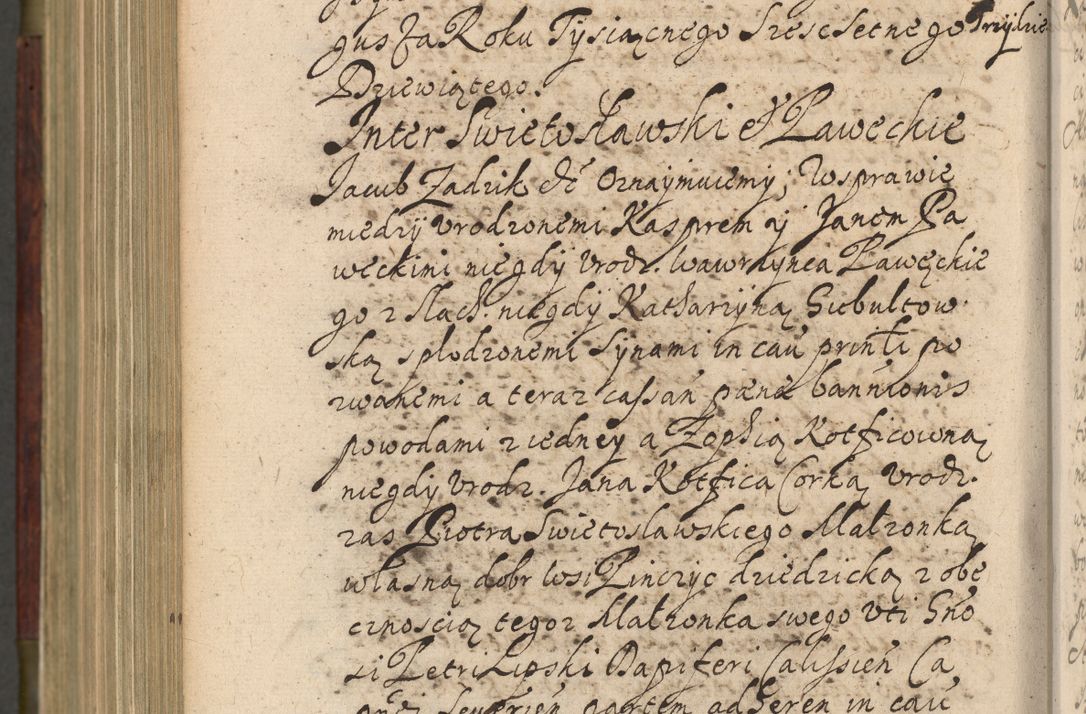 gusta Roku Tysiącnego Szescsetnego Trzydzie
Dziewiątego.
Inter Swietosławski et Paweckie
Jacub Zadzik etc Oznaymuiemy; W sprawie
miedzy Vrodzonemi Kasprem y Janem Pa
weckimi niegdy Vrodz. Wawrzynca Pawęckie
go z Slach. niegdy Katharzyną Giebultow
ską splodzonemi Synami in cau prinłi po
zwanemi a teraz cassan pænæ bannionis
powodami z iedney a Zophią Kotficowną
niegdy Vrodz. Jana Kotfica Corką Vrodz.
zas Piotra Swietoslawskiego Małzonką
własną dobr wsi Pinczyc dziedzicką z obe
cznoscią tegoz Małzonka swego vti Gno
si Petri Lipski Dapiferi Calissien Ca
Severien partem adhæren in cau